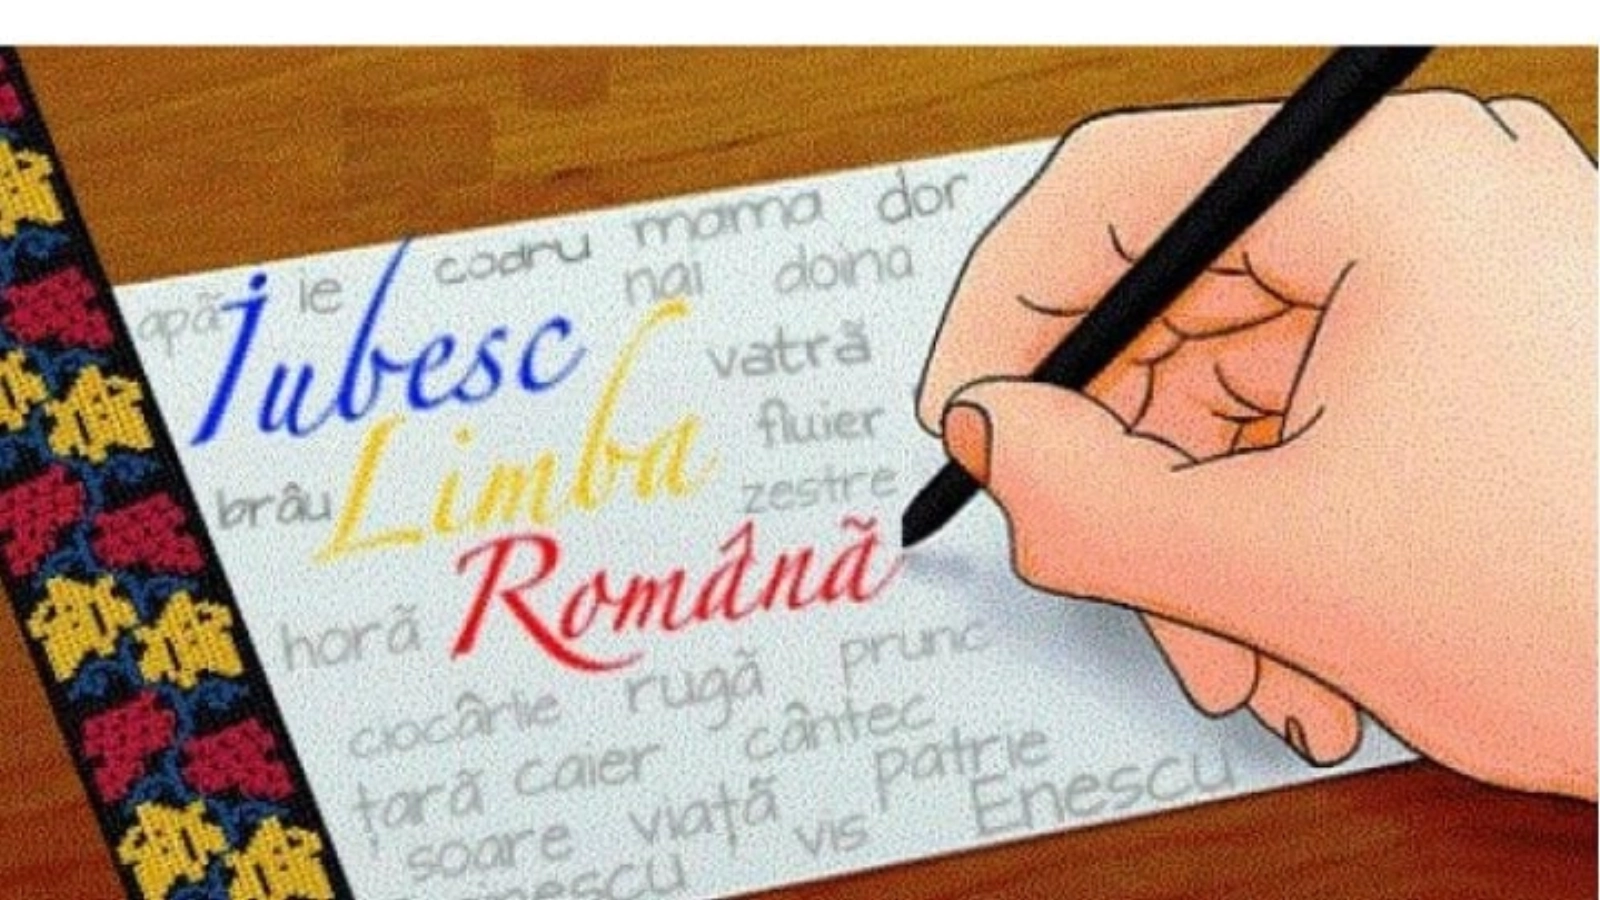 codru mama dor
apă ie nai doina
Iubesc vatră
Limba fluier
brâu zestre
Română
horă prunc
ciocârlie rugă
țară caier cântec
soare viață patrie
vis Enescu